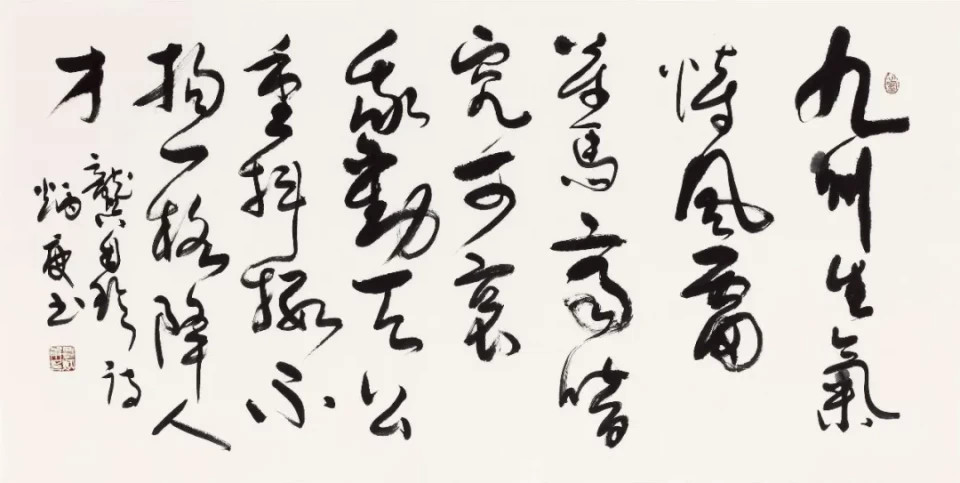 九州生氣
恃風雷
萬馬齊喑
究可哀
我勸天公
重抖擻不
拘一格降人
才
龔自珍詩
炳度書